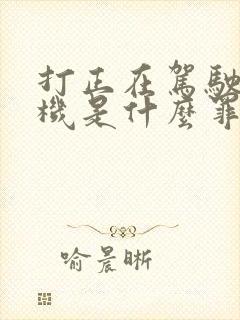 打正在駕駛
機是什麼罪
喻晨晰